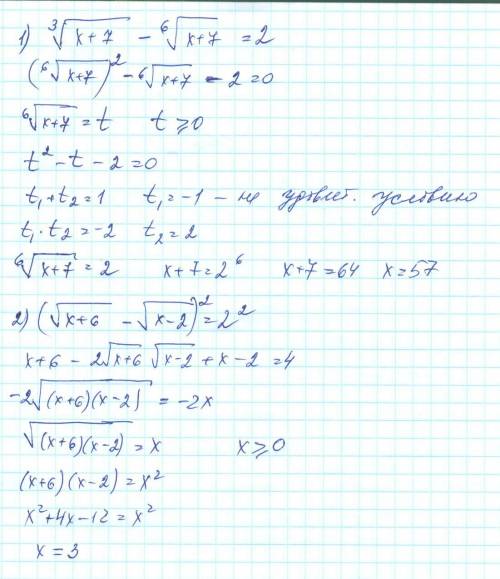 1) ∛(x+7) − ⁶√(x+7) = 2
(⁶√(x+7))² − ⁶√(x+7) − 2 = 0
⁶√(x+7) = t    t ⩾ 0
t² − t − 2 = 0
t₁ + t₂ = 1    t₁ = −1 − не удовлет. условию
t₁ · t₂ = −2    t₂ = 2
⁶√(x+7) = 2    x + 7 = 2⁶    x + 7 = 64    x = 57
2) (√(x+6) − √(x−2))² = 2²
x + 6 − 2√(x+6) √(x−2) + x − 2 = 4
−2√((x+6)(x−2)) = −2x
√((x+6)(x−2)) = x    x ⩾ 0
(x+6)(x−2) = x²
x² + 4x − 12 = x²
x = 3